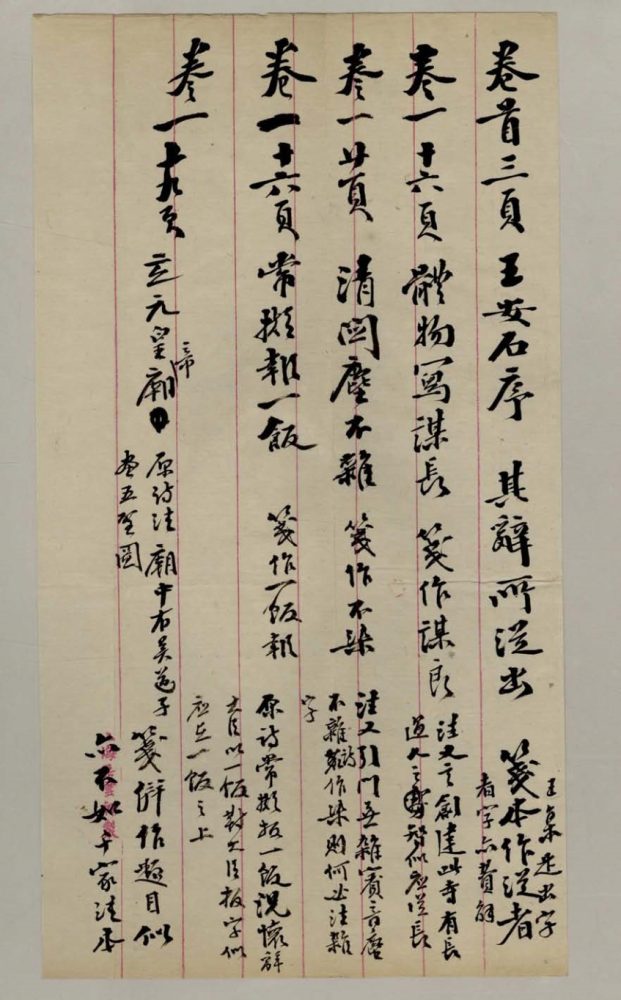 卷首三頁 王安石序 其辭所從出 箋本作從者
王集是出字
者字亦費解
卷一 十六頁 體物寫謀長 箋作謀良
注文言創建此寺有長
道人之智似應從長
卷一 廿頁 清閟塵不雜 箋作不染
注又引門無雜賓言塵
不雜詩若作染則何必注雜
字
卷一 十六頁 常擬報一飯 箋作一飯報
原詩常擬報一飯況懷辭
大臣以一飯對大臣報字似
應在一飯之上
卷一 十九頁 玄元皇帝廟
原詩注廟中有吳道子
畫五聖圖
箋併作題目似
亦不如千家注本